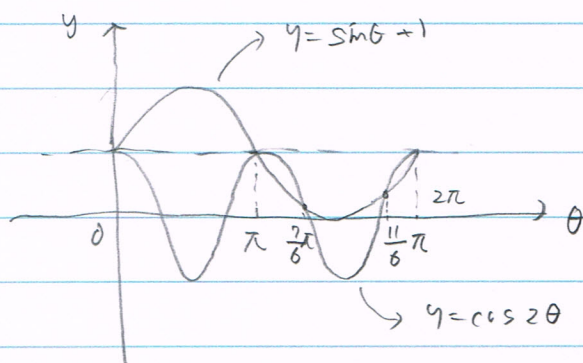 y
y = sinθ + 1
2π
0
π
7/6 π
11/6 π
θ
y = cos 2θ